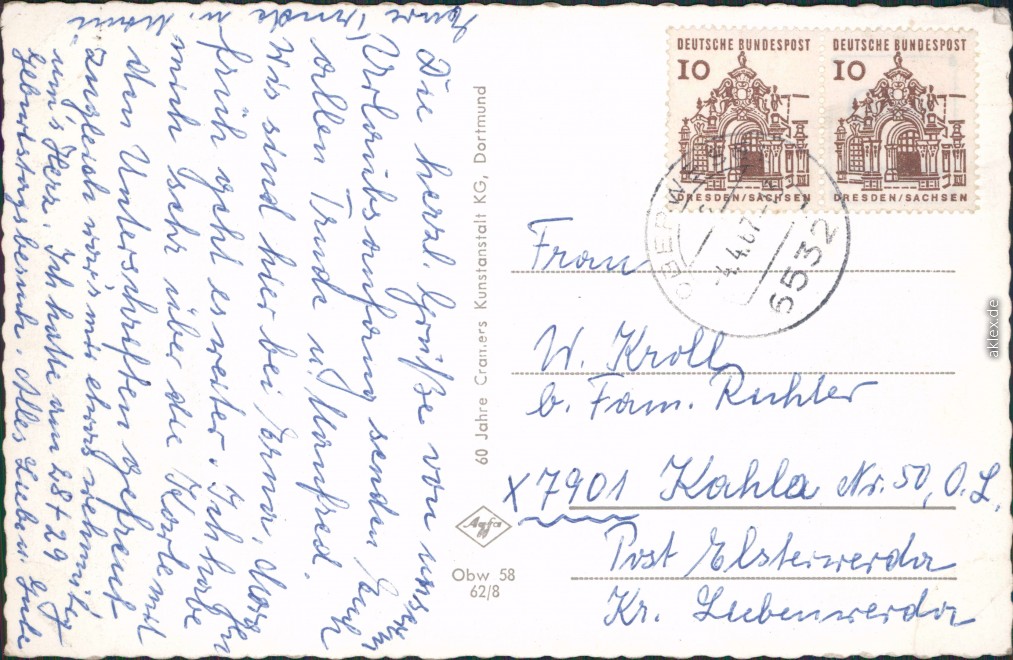 Die herzl. Grüße von unserm
Urlaubsanfang senden Euch
allen Trude u. Manfred.
Wir sind hier bei Erna. Morgen
früh geht es weiter. Ich habe
mich sehr über die Karte mit
den Unterschriften gefreut
zugleich war's mir etwas wehmütig
um's Herz. Ich hatte am 28 + 29
Geburtstagsbesuch. Alles Liebe u. Gute
Eure Trude u. Mann
60 Jahre Cramers Kunstanstalt KG, Dortmund
Agfa
Obw 58
62/8
DEUTSCHE BUNDESPOST
10
DRESDEN/SACHSEN
DEUTSCHE BUNDESPOST
10
DRESDEN/SACHSEN
4.4.67
6532
Frau
W. Kroll
b. Fam. Richter
X 7901 Kahla Nr. 50, O.L.
Post Elsterwerda
Kr. Liebenwerda
aklex.de